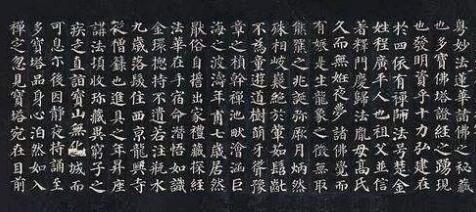 粤妙法蓮華諸佛之秘藏
也多寶佛塔證經之踴現
也發明資乎十力弘建在
於四依有禪師法號楚金
姓程廣平人也祖父並信
著釋門慶歸法胤母高氏
久而無妊夜夢諸佛覺而
有娠是生龍象之徵無取
熊羆之兆誕彌厥月炳然
殊相岐嶷絕於葷茹髫齔
不為童遊道樹萌牙聳豫
章之楨幹禪池畎澮涵巨
海之波濤年甫七歲居然
厭俗自誓出家禮藏探經
法華在手宿命潛悟如識
金環總持不遺若注瓶水
九歲落髮住西京龍興寺
從僧籙也進具之年昇座
講法頓收珍藏異窮子之
疾走直詣寶山無化城而
可息尔後因靜夜持誦至
多寶塔品身心泊然如入
禪定忽見寶塔宛在目前